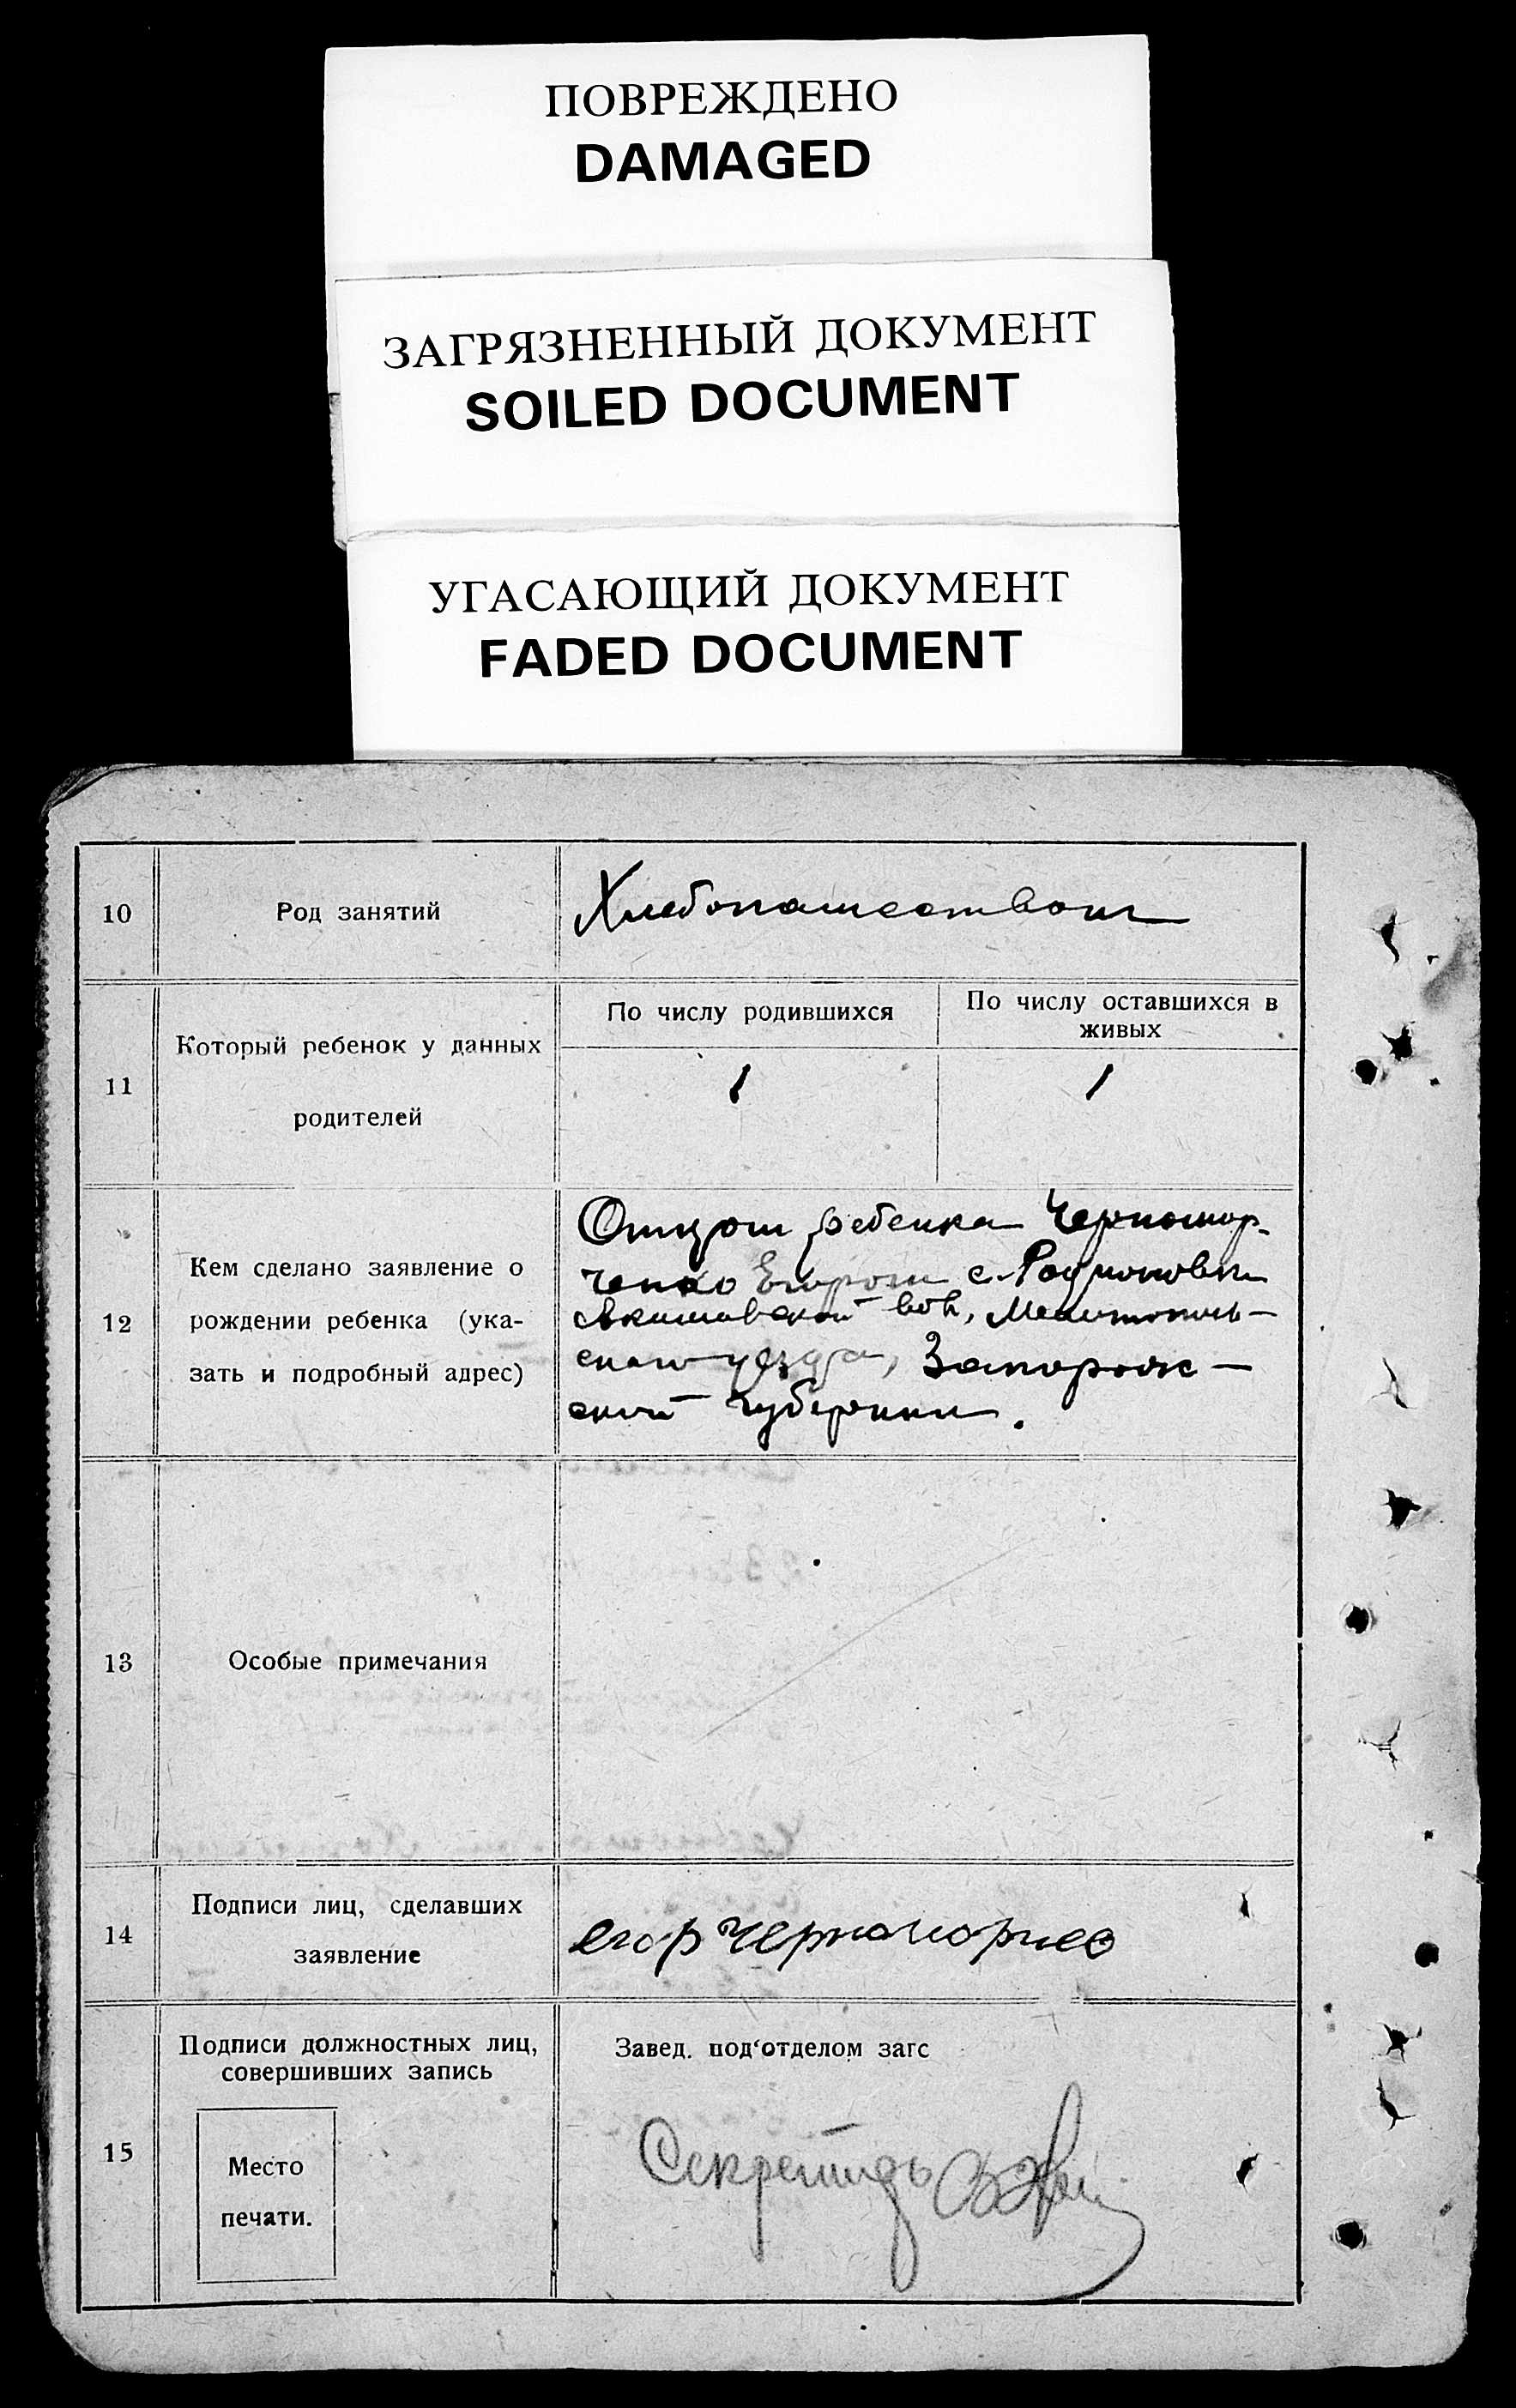 ПОВРЕЖДЕНО
DAMAGED
ЗАГРЯЗНЕННЫЙ ДОКУМЕНТ
SOILED DOCUMENT
УГАСАЮЩИЙ ДОКУМЕНТ
FADED DOCUMENT
10
Род занятий
Хлебопашеством
11
Который ребенок у данных
родителей
По числу родившихся
По числу оставшихся в
живых
1
1
12
Кем сделано заявление о
рождении ребенка (ука-
зать и подробный адрес)
Отцом ребенка Черномор-
ченко Егором с. Родионовки
Акимовской вол, Мелитополь-
ского уезда, Запорож-
ской губернии.
13
Особые примечания
14
Подписи лиц, сделавших
заявление
егор Черноморчев
15
Подписи должностных лиц,
совершивших запись
Место
печати.
Завед. под‘отделом загс
Секретарь